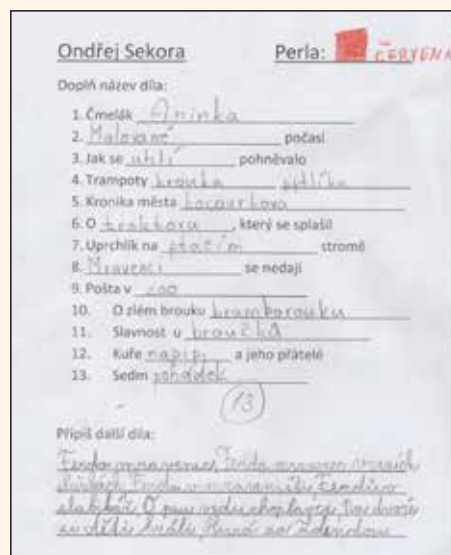 Ondřej Sekora Perla: ČERVENÁ
Doplň název díla:
1. Čmelák Aninka
2. Malované počasí
3. Jak se uhlí pohněvalo
4. Trampoty brouka pytlíka
5. Kronika města kocourkova
6. O traktoru, který se splašil
7. Uprchlík na ptačím stromě
8. Mravenci se nedají
9. Pošta v zoo
10. O zlém brouku bramborouku
11. Slavnost u broučků
12. Kuře napipi a jeho přátelé
13. Sedm pohádek
13
Připiš další díla:
Ferda mravenec, Ferda mravenec v cizích
službách Ferda v mraveništi, Ferdův
slabikář, O psu vzduchoplavci, Na dvoře
si děti hrály,